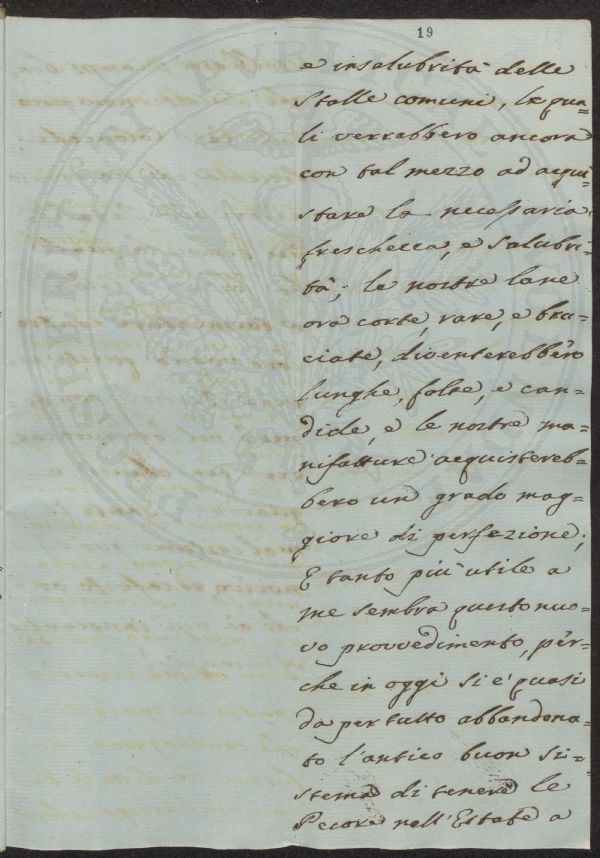 19
e insalubrità delle
stalle comuni, le qua=
li verrebbero ancora
con tal mezzo ad acqui=
stare la necessaria
freschezza, e salubri=
tà; le nostre lane
ora corte, rare, e bru=
ciate, diventerebbero
lunghe, folte, e can=
dide, e le nostre ma=
nifatture acquistereb=
bero un grado mag=
giore di perfezione;
E tanto più utile a
me sembra questo nuo=
vo provvedimento, per=
che in oggi si e' quasi
da per tutto abbandona=
to l'antico buon si=
stema di tenere le
Pecore nell'Estate a